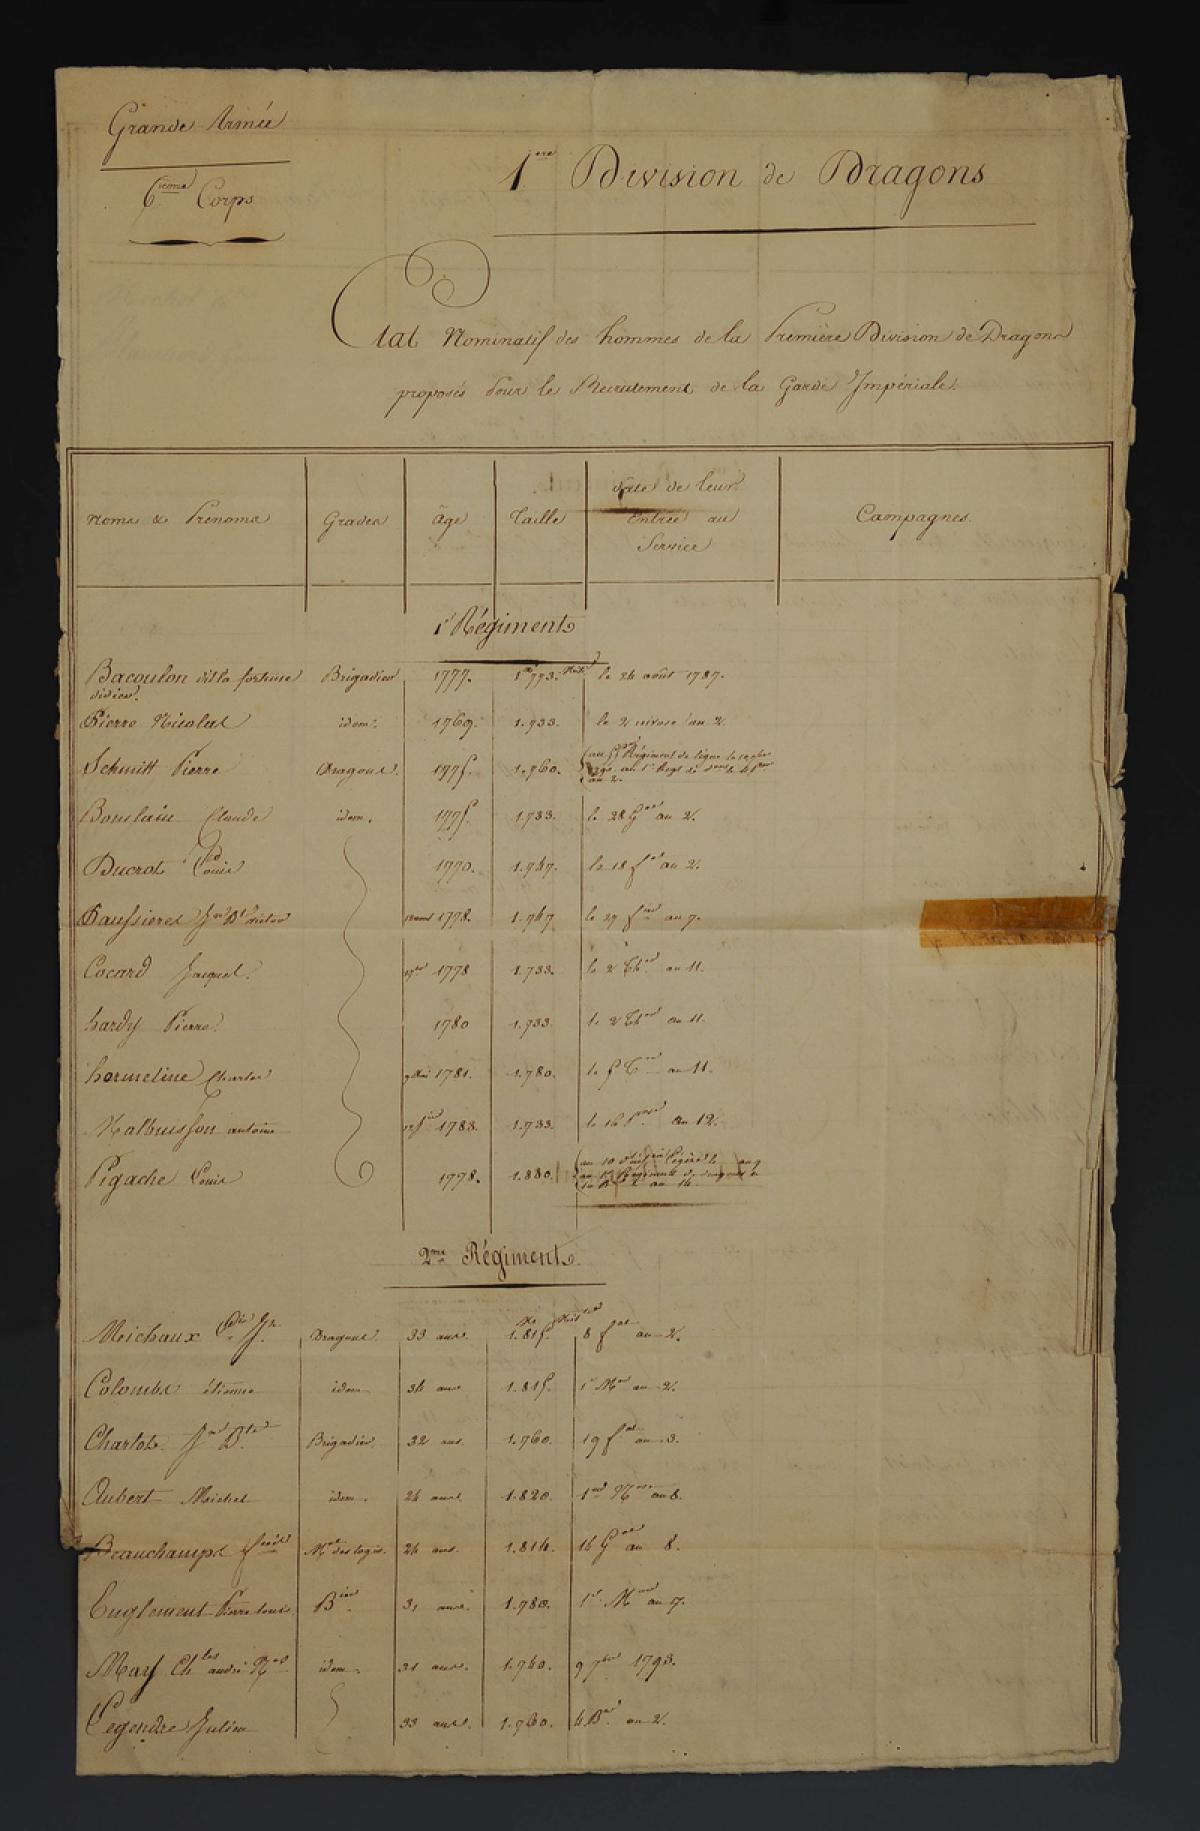 Grande Armée
6ieme Corps
1ere Division de Dragons
Etat Nominatif des hommes de la Première Division de Dragons
proposés pour le Recrutement de la Garde Impériale.
Noms & Prenoms Grades Âge Taille Date de leur Entrée au Service Campagnes.
1r Régiment
Bacoulon dit la fortune Brigadier 1777. 1m 773. le 24 août 1787.
didier.
Pierre Nicolas idem. 1769. 1.733. le 2 nivose an 2.
Schmitt Pierre Dragons. 1775. 1.760. Régiment de ligne
an 2.
Bonslain Claude idem. 1775. 1.733. le 28 Gal an 2.
Ducrot Louis 1770. 1.747. le 18 fal an 2.
Jn Bte victor 1778. 1.747 le 27 an 7.
Cocard Jacques. 1778 1.733. le 2 Thor an 11.
hardy Pierre. 1780 1.733. le 2 Thor an 11.
hormeline Charles 1781. 1.780. le 5 an 11.
Malbuisson antoine 1783. 1.733. le 16 an 12.
Pigache Louis 1778. 1.880. au 10
au 1r Régiment de dragons
an 14
2me Régiment.
Meichaux Jn. Dragons. 33 ans. 1.815. 8 fal an 2.
Colombe étienne idem 34 ans 1.815. 1r Mor an 2.
Chartot Jn Bte Brigadier. 32 ans. 1.760. 19 fal an 3.
Aubert Michel idem. 24 ans. 1.820. 1er an 8.
Beauchamps Mal des logis. 24 ans. 1.814. 16 Gal an 8.
Englement Pierre louis Bier. 31 ans. 1.780. 1er an 7.
May Chles andré idem. 31 ans. 1.760. 9 7bre 1793.
Legendre Julien 33 ans. 1.760. 4 an 2.